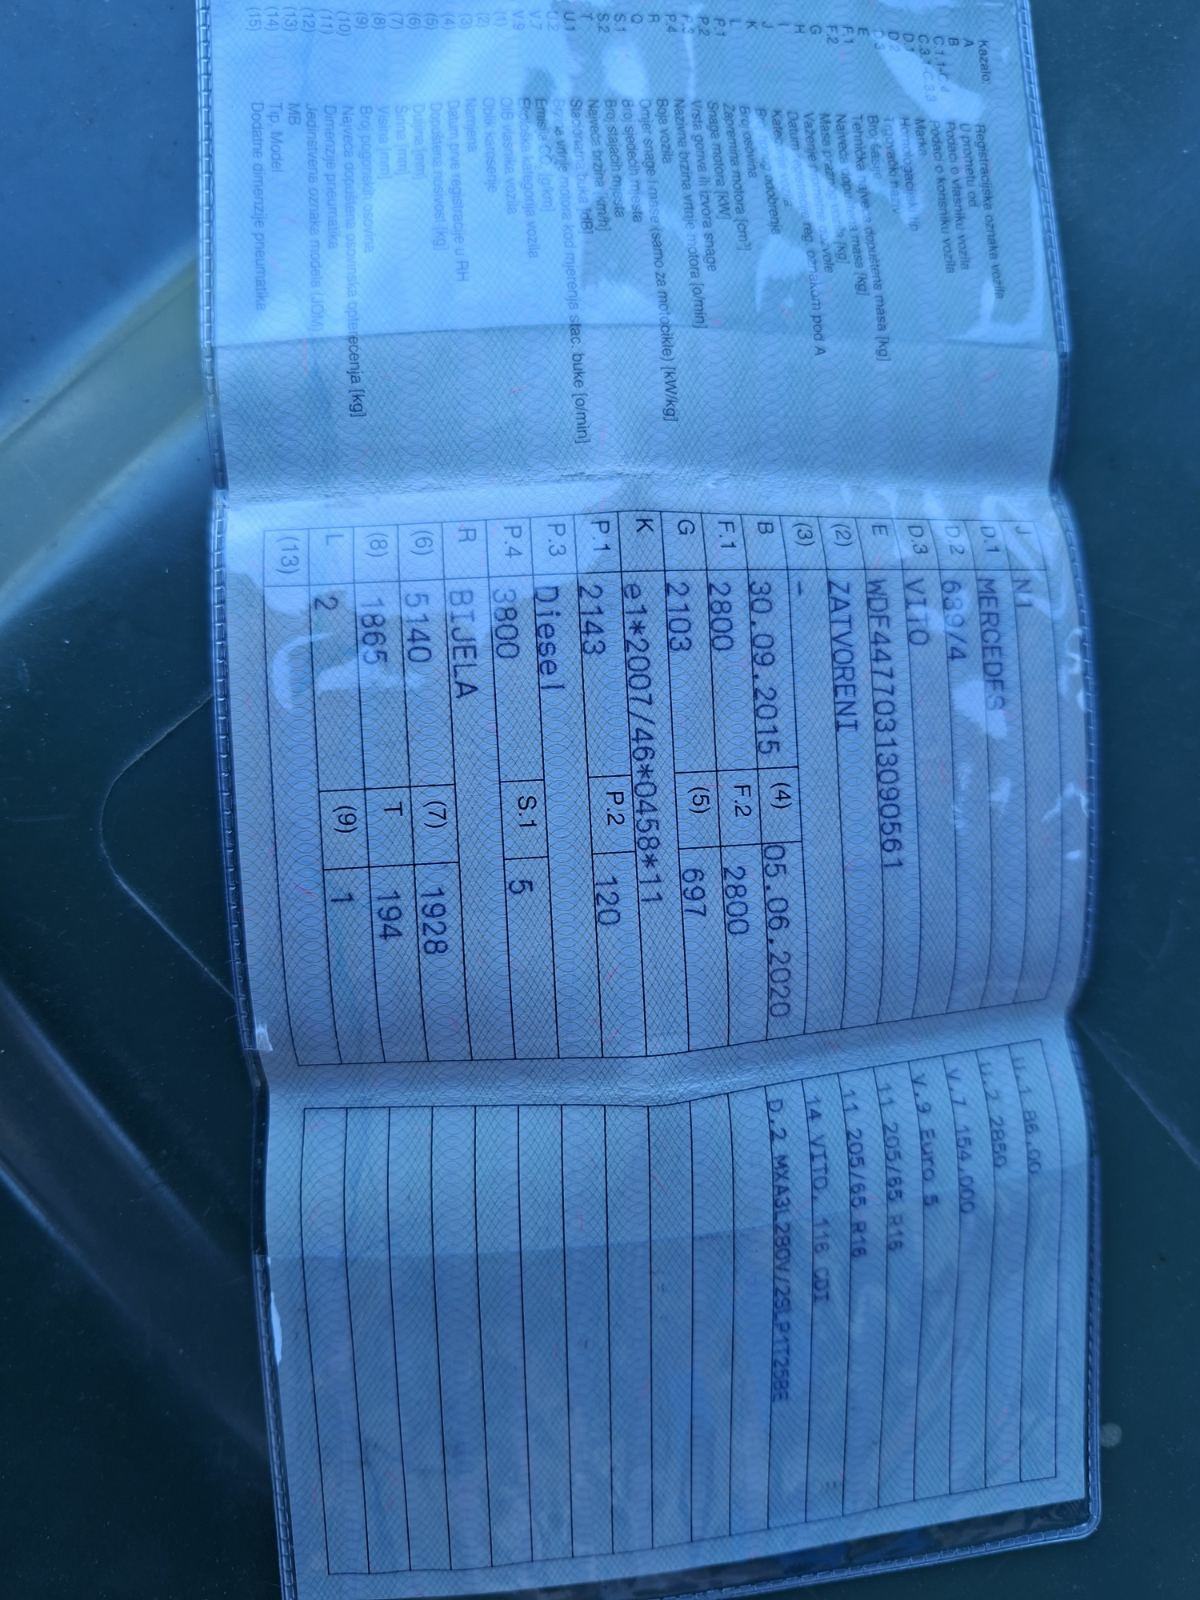 Kazalo:
A Registracijska oznaka vozila
B U prometu od
C.1.1-C Podaci o vlasniku vozila
C.3.1-C.3.3 Podaci o korisniku vozila
D.1 Marka
D.2 Homologacijski tip
D.3 Trgovački naziv
E Broj šasije
F.1 Tehnička najveća dopuštena masa [kg]
F.2 Najveća dopuštena masa [kg]
G Masa praznog vozila [kg]
H Važenje prometne dozvole
I Datum reg. oznakom pod A
J Kategorija vozila
K odobrenje
L Broj osovina
P.1 Zapremina motora [cm³]
P.2 Snaga motora [kW]
P.3 Vrsta goriva ili izvora snage
P.4 Nazivna brzina vrtnje motora [o/min]
R Boja vozila
Q Omjer snage i mase (samo za motocikle) [kW/kg]
S.1 Broj sjedećih mjesta
S.2 Broj stajaćih mjesta
T Najveća brzina [km/h]
U.1 Stacionarna buka
U.2 Brzina vrtnje motora kod mjerenja stac. buke [o/min]
V.7 Emisija CO [g/km]
V.9 Ekološka kategorija vozila
(1) OIB vlasnika vozila
(2) Oblik karoserije
(3) Namjena
(4) Datum prve registracije u RH
(5) Dopuštena nosivost [kg]
(6) Dužina [mm]
(7) Širina [mm]
(8) Visina [mm]
(9) Broj pogonskih osovina
(10) Najveća dopuštena osovinska opterećenja [kg]
(11) Dimenzije pneumatika
(12) Jedinstvena oznaka modela (JOM)
(13) MB
(14) Tip, Model
(15) Dodatne dimenzije pneumatika
J N1
D.1 MERCEDES
D.2 639/4
D.3 VITO
E WDF44770313090561
(2) ZATVORENI
(3) -
B 30.09.2015 (4) 05.06.2020
F.1 2800 F.2 2800
G 2103 (5) 697
K e1*2007/46*0458*11
P.1 2143 P.2 120
P.3 Diesel
P.4 3800 S.1 5
R BIJELA
(6) 5140 (7) 1928
(8) 1865 T 194
L 2 (9) 1
(13)
U.1 86.00
U.2 2850
V.7 154.000
V.9 Euro 5
11 205/65 R16
11 205/65 R16
14 VITO, 116 CDI
D.2 MXA3L280V/2SLP1T25BE